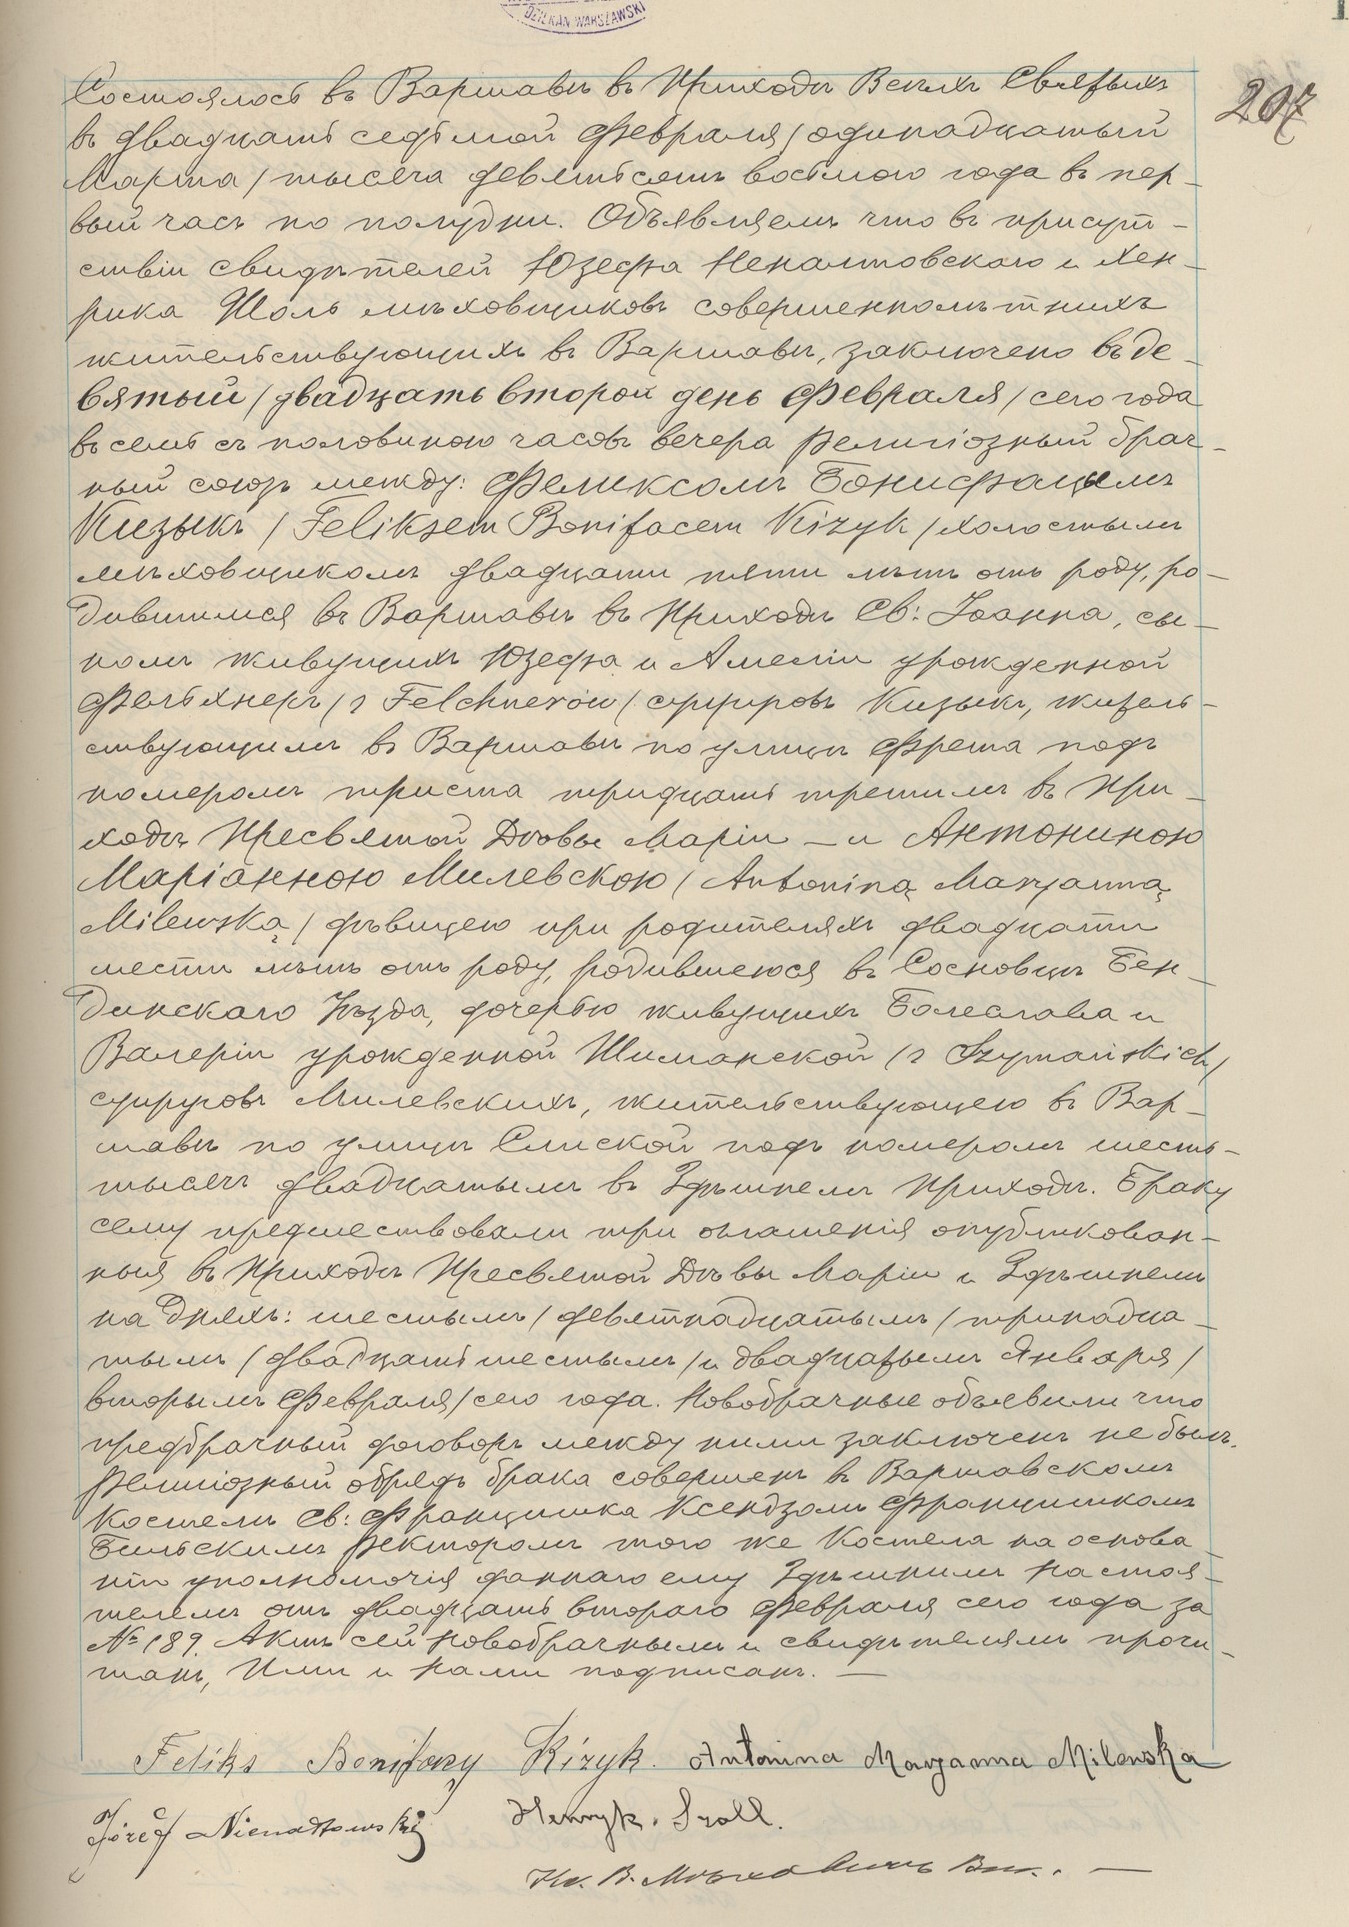 DZIEKAN WARSZAWSKI
207
Состоялось въ Варшавѣ въ Приходѣ Всѣхъ Святыхъ
въ двадцать седьмой Февраля / одинадцатый
Марта / тысяча девятьсотъ восьмого года въ пер-
вый часъ по полудни. Объявляемъ что въ присут-
ствіи свидѣтелей Юзефа Неналтовскаго и Хен-
рика Шоль мѣховщиковъ совершеннолѣтнихъ
жительствующихъ въ Варшавѣ, заключено въ де-
вятый / двадцать второй день Февраля / сего года
въ семь съ половиною часовъ вечера религіозный брач-
ный союзъ между: Феликсомъ Бонифацымъ
Кизыкъ / Feliksem Bonifacem Kizyk / холостымъ
мѣховщикомъ двадцати пяти лѣтъ отъ роду, ро-
дившимся въ Варшавѣ въ Приходѣ Св: Іоанна, сы-
номъ живущихъ Юзефа и Амеліи урожденной
Фельхнеръ / z Felchnerów / супруговъ Кизыкъ, житель-
ствующимъ въ Варшавѣ по улицѣ Фрета подъ
номеромъ триста тридцать третимъ въ При-
ходѣ Пресвятой Дѣвы Маріи — и Антониною
Маріанною Милевскою / Antoniną Maryanną
Milewską / дѣвицею при родителяхъ двадцати
шести лѣтъ отъ роду, родившеюся въ Сосновцѣ Бен-
динскаго Уѣзда, дочерью живущихъ Болеслава и
Валеріи урожденной Шиманской / z Szymańskich /
супруговъ Милевскихъ, жительствующею въ Вар-
шавѣ по улицѣ Слиской подъ номеромъ шесть-
тысячъ двадцатымъ въ Здѣшнемъ Приходѣ. Браку
сему предшествовали три оглашенія опубликован-
ныя въ Приходѣ Пресвятой Дѣвы Маріи и Здѣшнемъ
на дняхъ: шестымъ / девятнадцатымъ / тринадца-
тымъ / двадцать шестымъ / и двадцатымъ Января /
вторымъ Февраля / сего года. Новобрачные объявили что
предбрачный договоръ между ними заключенъ не былъ.
Религіозный обрядъ брака совершенъ въ Варшавскомъ
Костелѣ Св: Францишка Ксендзомъ Францишкомъ
Бильскимъ Ректоромъ того же Костела на основа-
ніи уполномочія даннаго ему Здѣшнимъ Настоя-
телемъ отъ двадцать второго Февраля сего года за
№ 189. Актъ сей Новобрачнымъ и свидѣтелямъ прочи-
танъ, Ими и Нами подписанъ. —
Feliks Bonifacy Kizyk. Antonina Maryanna Milewska
Józef Nienałtowski Henryk. Szoll.
Кс. В.